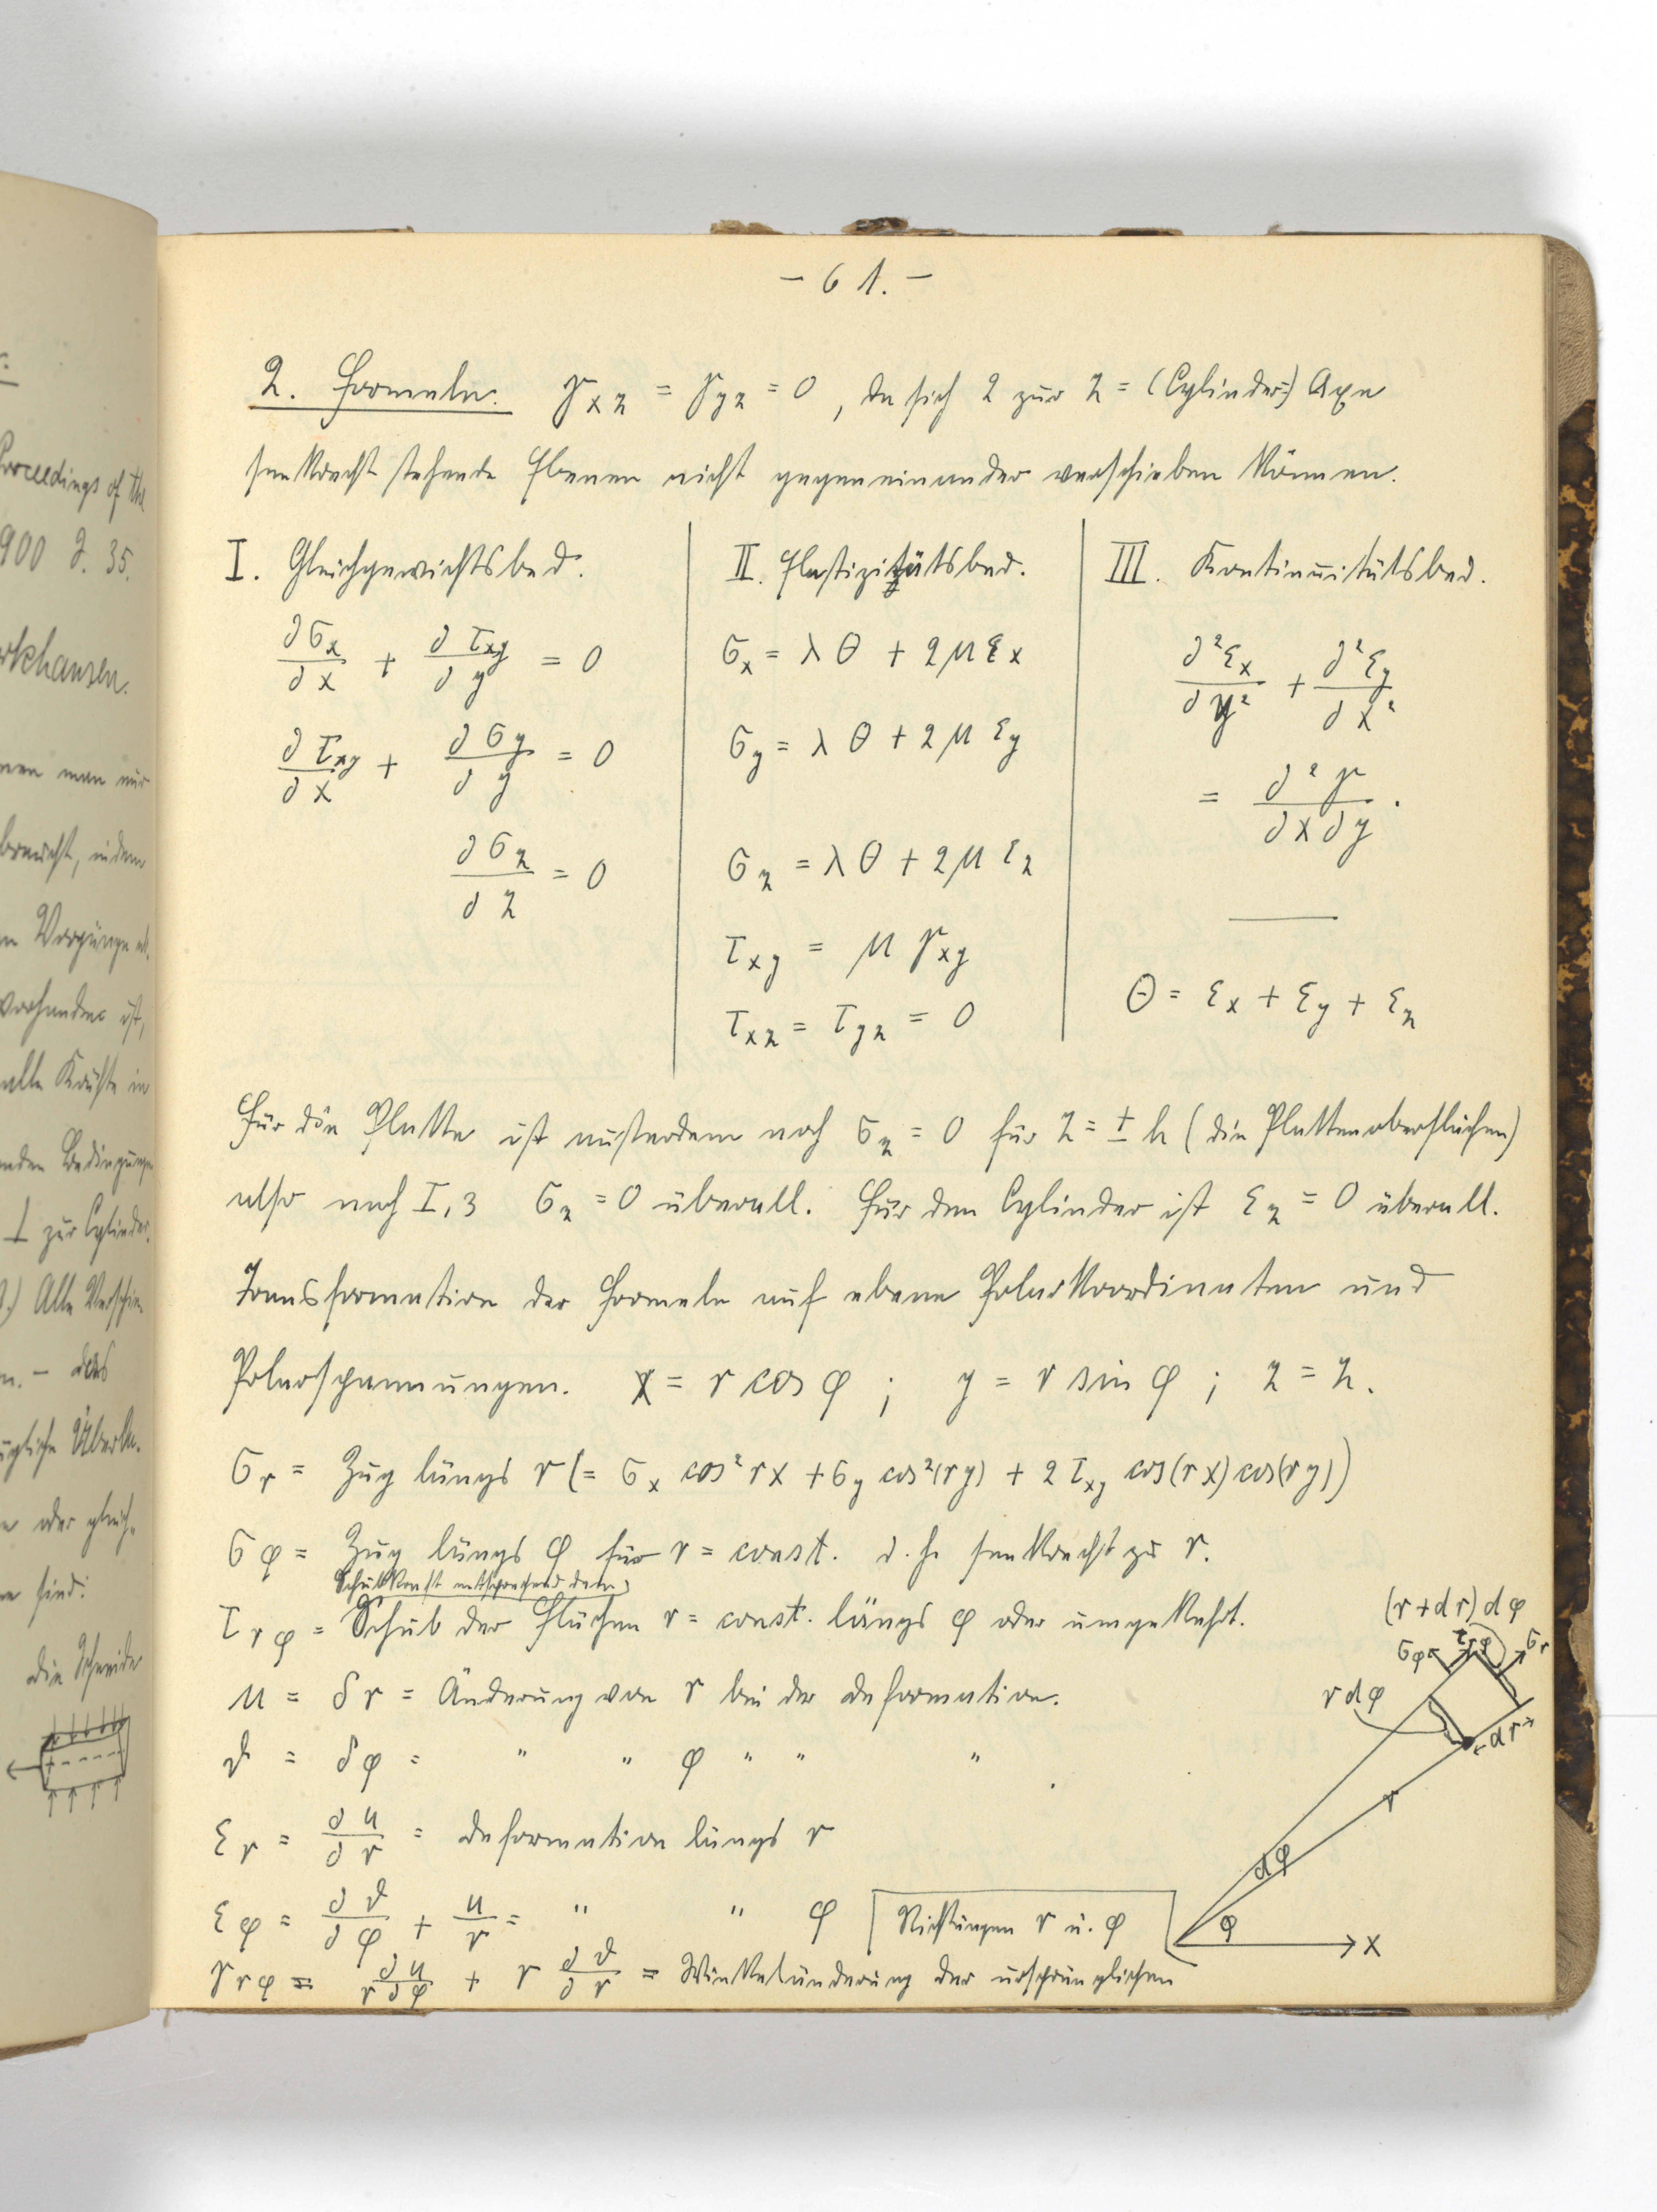 — 61. —
2. Formeln. γxz = γyz = 0, da sich 2 zur z = (Cylinder=) Axe
senkrecht stehende Ebenen nicht gegeneinander verschieben können.
I. Gleichgewichtsbed.
∂σx/∂x + ∂τxy/∂y = 0
∂τxy/∂x + ∂σy/∂y = 0
∂σz/∂z = 0
II. Elastizitätsbed.
σx = λθ + 2μεx
σy = λθ + 2μεy
σz = λθ + 2μεz
τxy = μγxy
τxz = τyz = 0
III. Kontinuitätsbed.
∂²εx/∂y² + ∂²εy/∂x²
= ∂²γ/∂x∂y.
Θ = εx + εy + εz
Für die Platte ist außerdem noch σz = 0 für z = ± h (die Plattenoberflächen)
also nach I,3 σz = 0 überall. Für den Cylinder ist εz = 0 überall.
Transformation der Formeln auf ebene Polarkoordinaten und
Polarspannungen. x = r cos φ ; y = r sin φ ; z = z.
σr = Zug längs r (= σx cos² rx + σy cos²(ry) + 2 τxy cos(rx) cos(ry))
σφ = Zug längs φ für r = const. d. h. senkrecht zu r.
Schubkraft entsprechend dem
τrφ = Schub der Flächen r = const. längs φ oder umgekehrt.
u = δr = Änderung von r bei der Deformation.
ϑ = δφ = " " φ " " "
εr = ∂u/∂r = Deformation längs r
εφ = ∂ϑ/∂φ + u/r = " " φ
Richtungen r u. φ
γrφ = ∂u/r∂φ + r ∂ϑ/∂r = Winkeländerung der ursprünglichen
(r + dr) dφ
σφ τrφ σr
r dφ
dr
r
dφ
φ
x
Proceedings of the
900 S. 35.
man nur
braucht, indem
Vorgänge
vorhanden ist,
alle Kräfte in
Bedingungen
⊥ zur Cylinder
Alle Verschie
— das
oder gleich
sind:
die Schneide